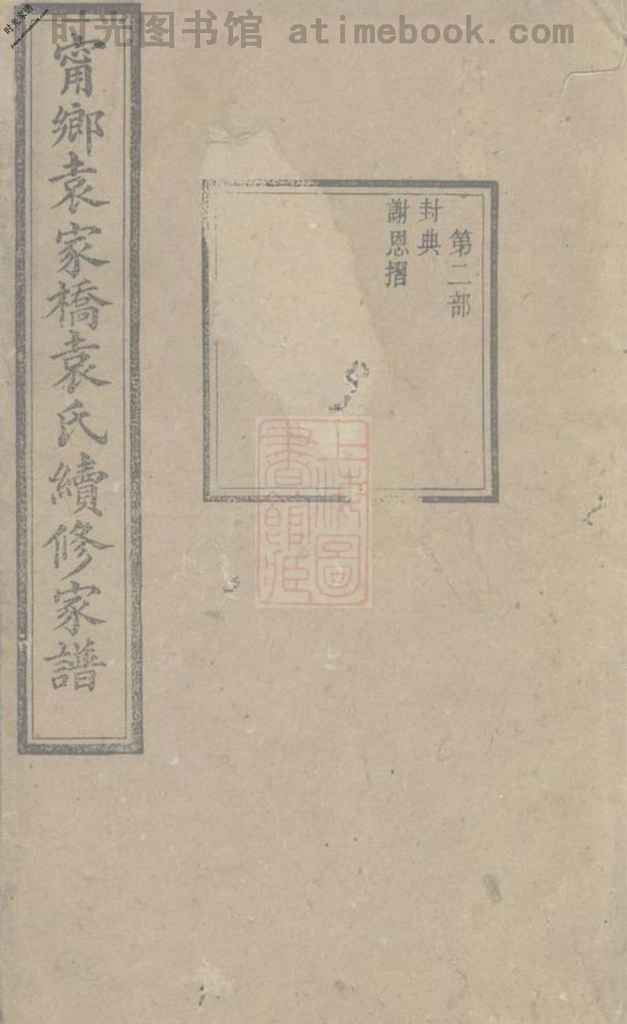 时光图书馆 atimebook.com
甯鄉袁家橋袁氏續修家譜
第二部
封典
謝恩摺
上海圖
書館藏